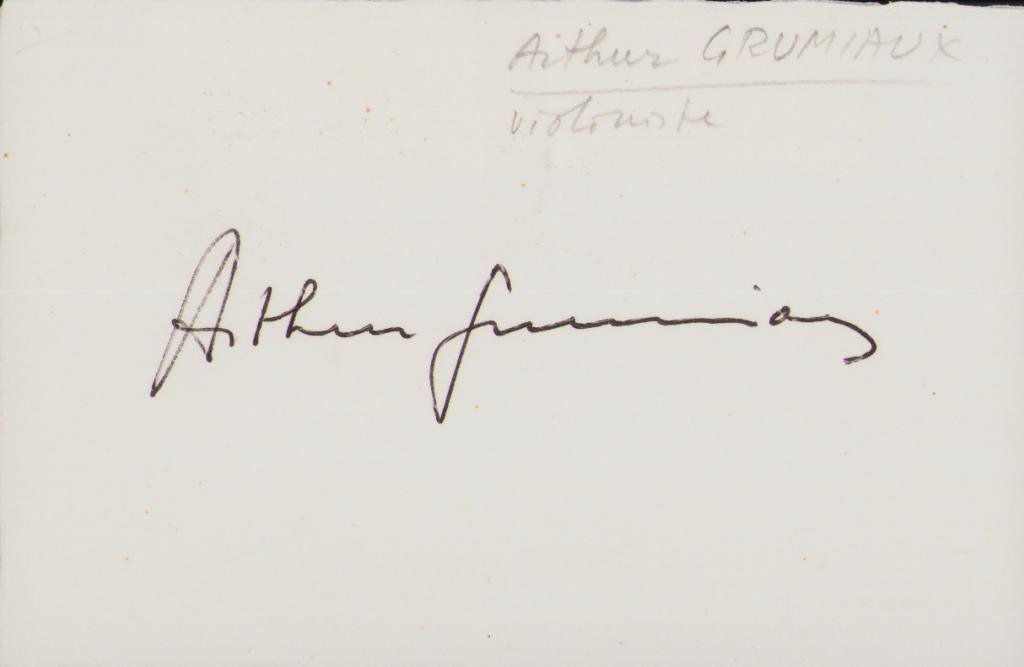 Arthur GRUMIAUX
violoniste
Arthur Grumiaux